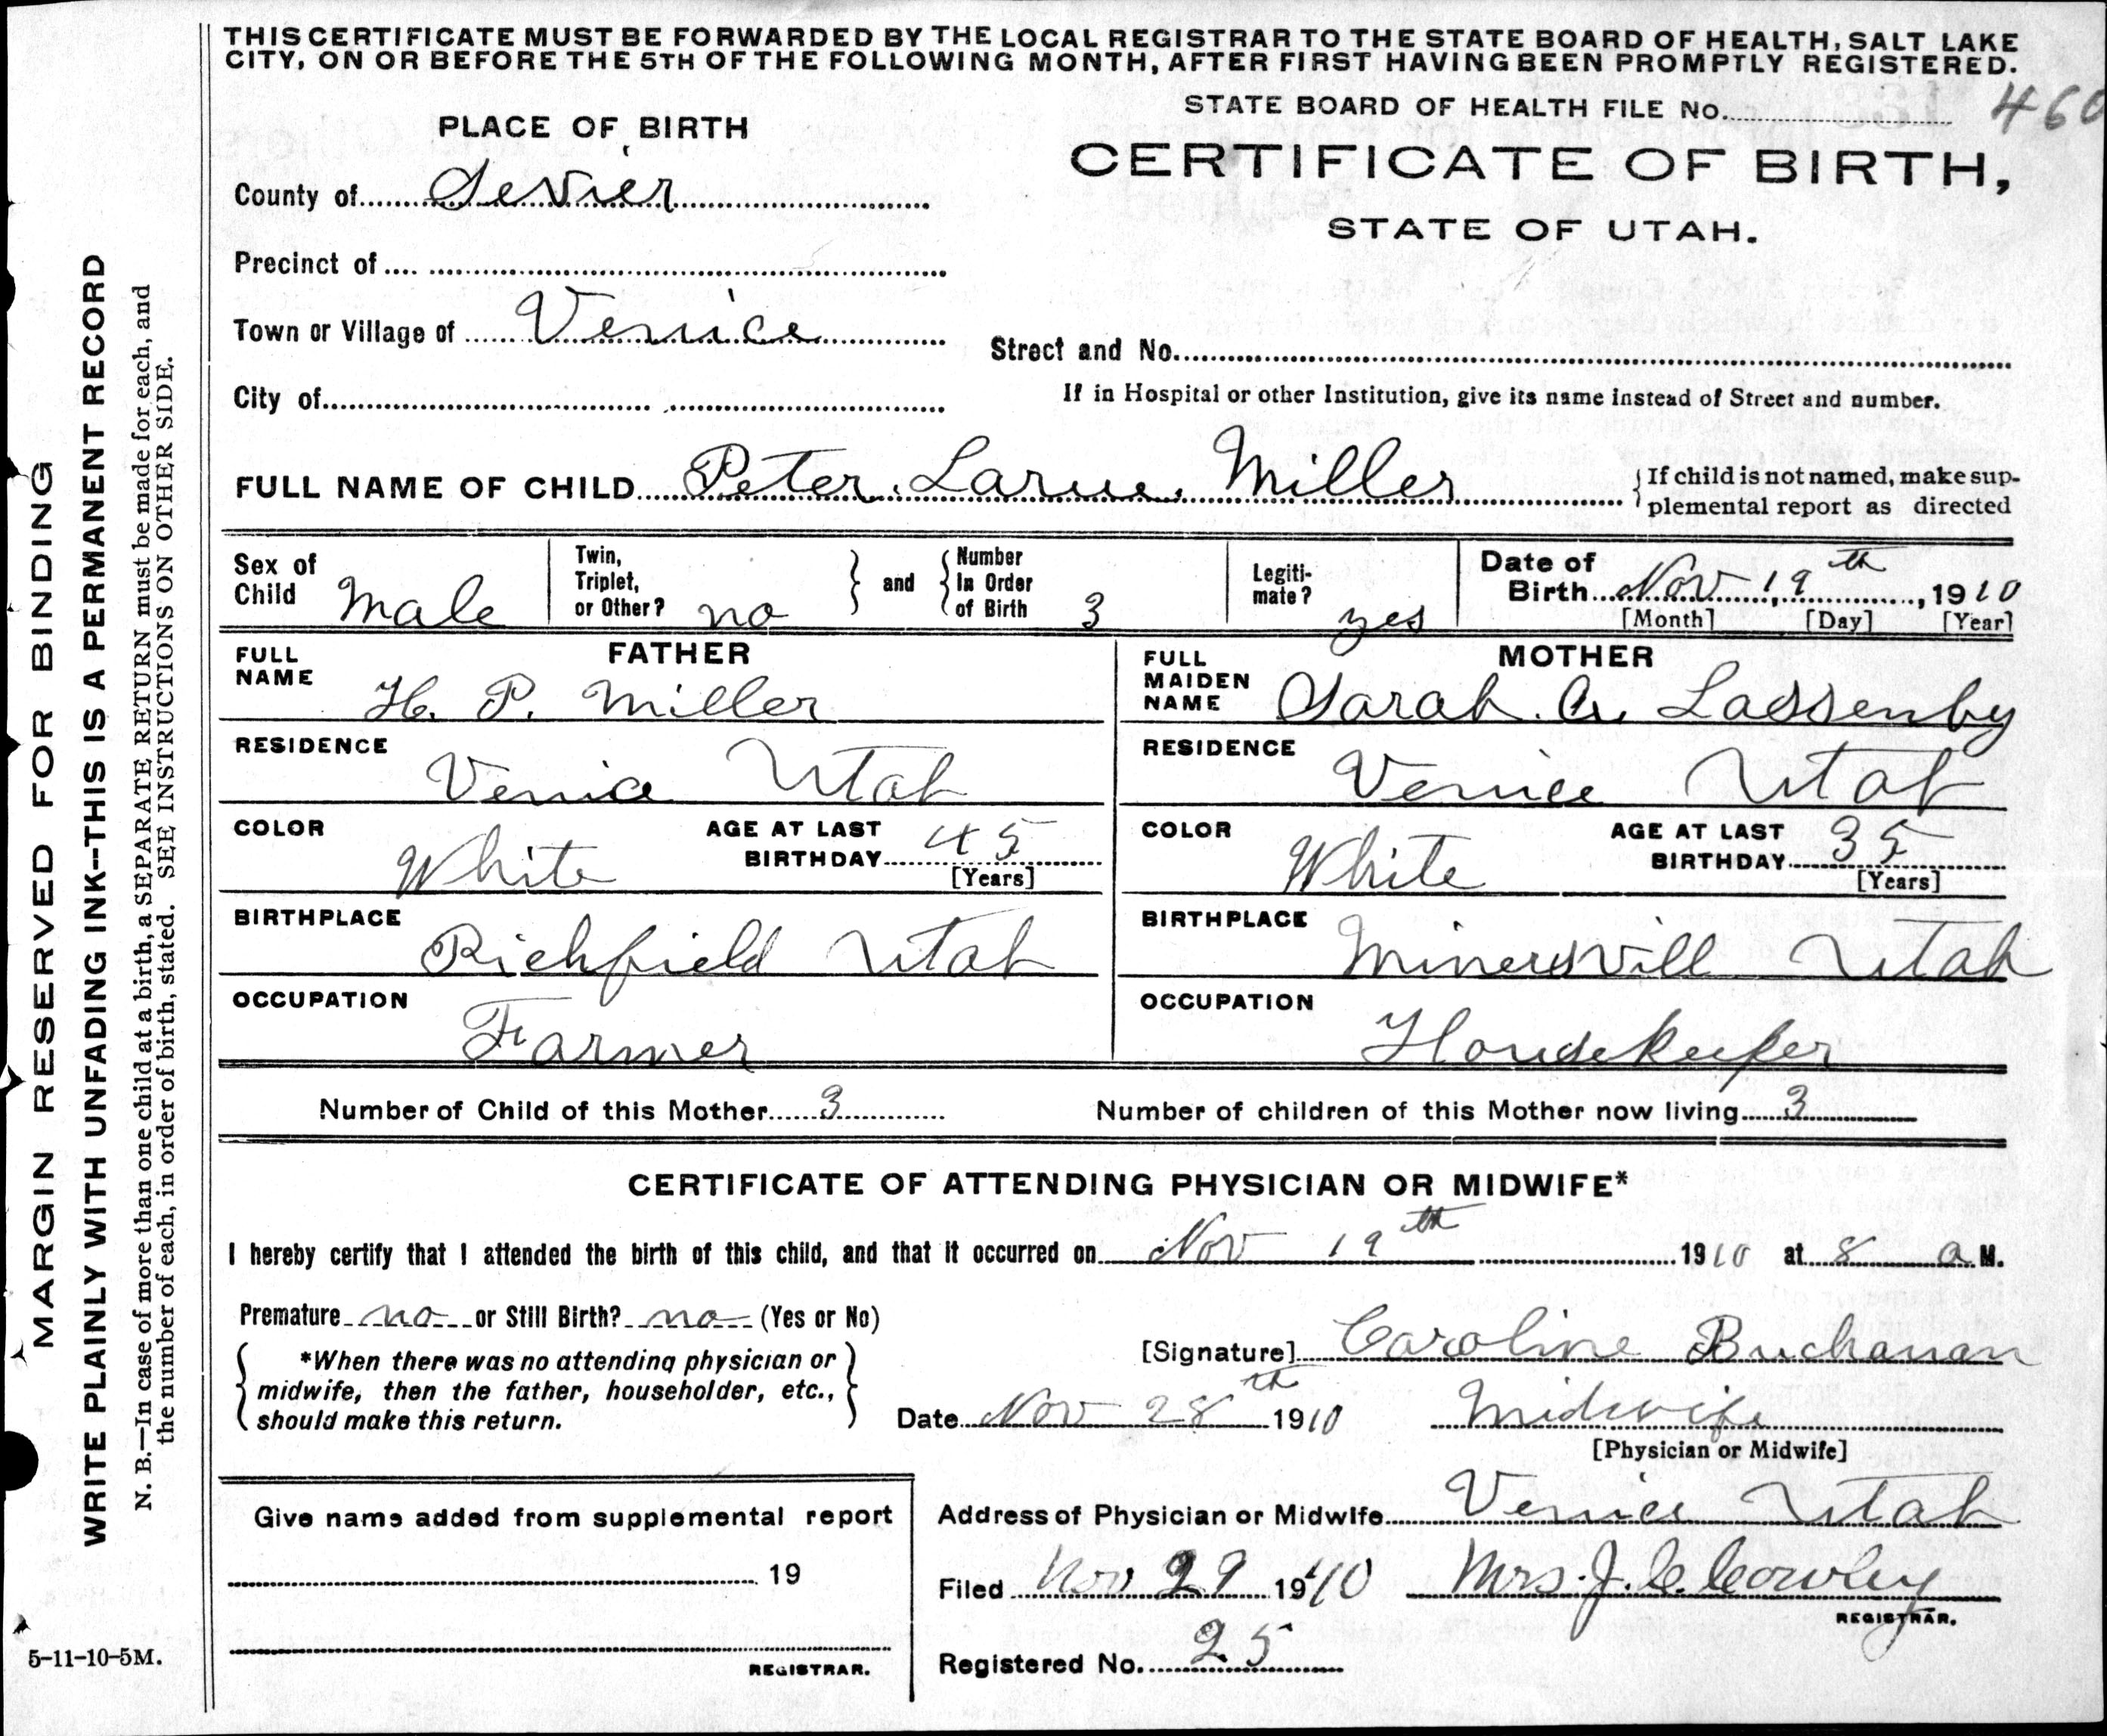 THIS CERTIFICATE MUST BE FORWARDED BY THE LOCAL REGISTRAR TO THE STATE BOARD OF HEALTH, SALT LAKE
CITY, ON OR BEFORE THE 5TH OF THE FOLLOWING MONTH, AFTER FIRST HAVING BEEN PROMPTLY REGISTERED.
STATE BOARD OF HEALTH FILE No. 460
PLACE OF BIRTH
CERTIFICATE OF BIRTH,
STATE OF UTAH.
County of Sevier
Precinct of
Town or Village of Venice
Street and No.
City of
If in Hospital or other Institution, give its name instead of Street and number.
FULL NAME OF CHILD Peter Larue Miller
{ If child is not named, make sup-
plemental report as directed
Sex of
Child Male
Twin,
Triplet,
or Other? no
} and {
Number
In Order
of Birth 3
Legiti-
mate? yes
Date of
Birth Nov 19th, 1910
[Month] [Day] [Year]
FATHER
FULL
NAME
H. P. Miller
RESIDENCE
Venice Utah
COLOR
White
AGE AT LAST
BIRTHDAY 45
[Years]
BIRTHPLACE
Richfield Utah
OCCUPATION
Farmer
MOTHER
FULL
MAIDEN
NAME
Sarah A. Lassenby
RESIDENCE
Venice Utah
COLOR
White
AGE AT LAST
BIRTHDAY 35
[Years]
BIRTHPLACE
Minersvill Utah
OCCUPATION
Housekeeper
Number of Child of this Mother 3
Number of children of this Mother now living 3
CERTIFICATE OF ATTENDING PHYSICIAN OR MIDWIFE*
I hereby certify that I attended the birth of this child, and that it occurred on Nov 19th 1910 at 8 a M.
Premature no or Still Birth? no (Yes or No)
{ *When there was no attending physician or
midwife, then the father, householder, etc.,
should make this return. }
[Signature] Caroline Buchanan
Date Nov 28th 1910
Midwife
[Physician or Midwife]
Give name added from supplemental report
19
REGISTRAR.
Address of Physician or Midwife Venice Utah
Filed Nov 29 1910 Mrs. J. C. Cowley
REGISTRAR.
Registered No. 25
MARGIN RESERVED FOR BINDING
WRITE PLAINLY WITH UNFADING INK--THIS IS A PERMANENT RECORD
N. B.—In case of more than one child at a birth, a SEPARATE RETURN must be made for each, and
the number of each, in order of birth, stated. SEE INSTRUCTIONS ON OTHER SIDE.
5-11-10-5M.